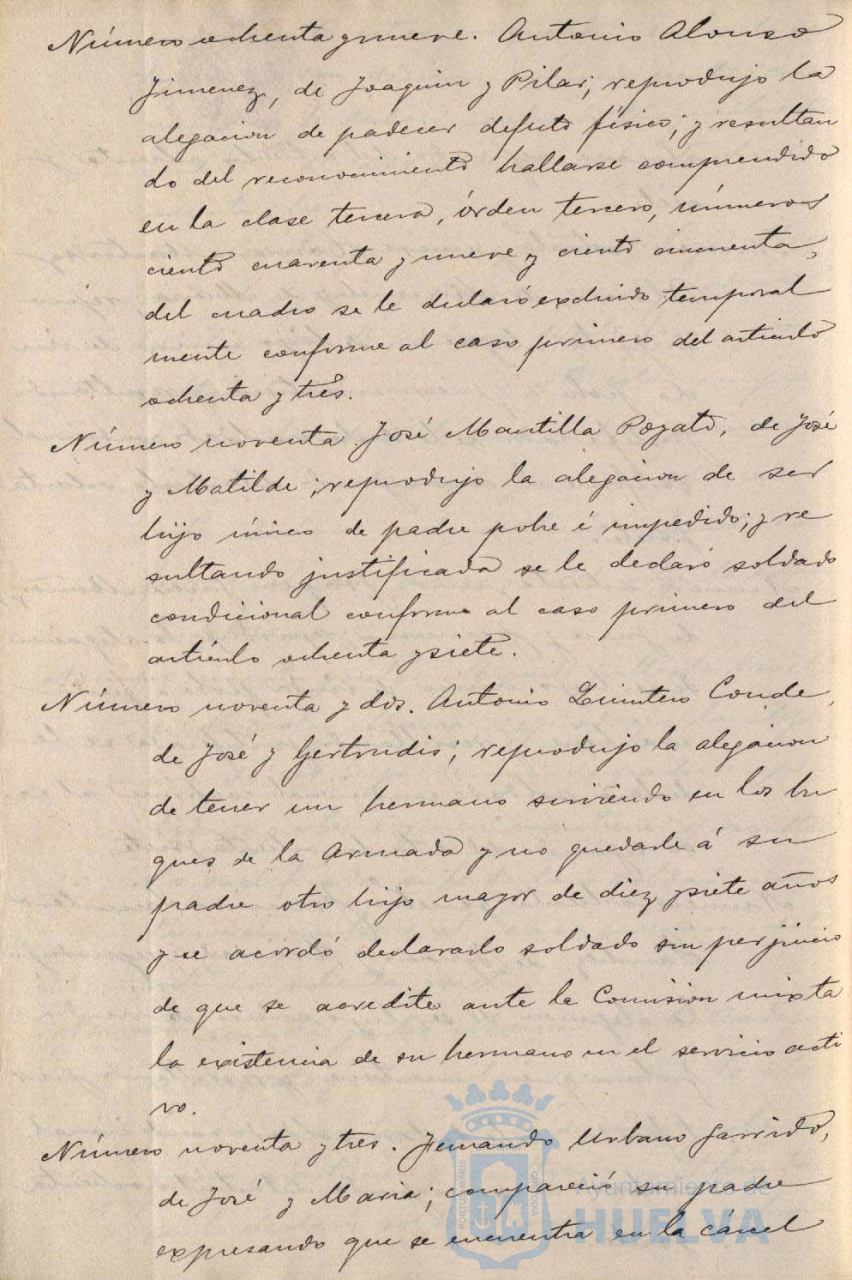 Número ochenta y nueve. Antonio Alonso
Jimenez, de Joaquin y Pilar; reprodujo la
alegacion de padecer defecto físico; y resultan
do del reconocimiento hallarse comprendido
en la clase tercera, órden tercero, números
ciento cuarenta y nueve y ciento cincuenta,
del cuadro se le declaró excluido temporal
mente conforme al caso primero del articulo
ochenta y tres.
Número noventa. José Mantilla Pogato, de José
y Matilde; reprodujo la alegacion de ser
hijo único de padre pobre é impedido; y re
sultando justificada se le declaró soldado
condicional conforme al caso primero del
artículo ochenta y siete.
Número noventa y dos. Antonio Quintero Conde,
de José y Gertrudis; reprodujo la alegacion
de tener un hermano sirviendo en los bu
ques de la Armada y no quedarle á su
padre otro hijo mayor de diez y siete años
y se acordó declararlo soldado sin perjuicio
de que se acredite ante la Comision mixta
la existencia de su hermano en el servicio acti
vo.
Número noventa y tres. Fernando Urbano Garrido,
de José y Maria; compareció su padre
expresando que se encuentra en la cárcel
Ayuntamiento de
HUELVA